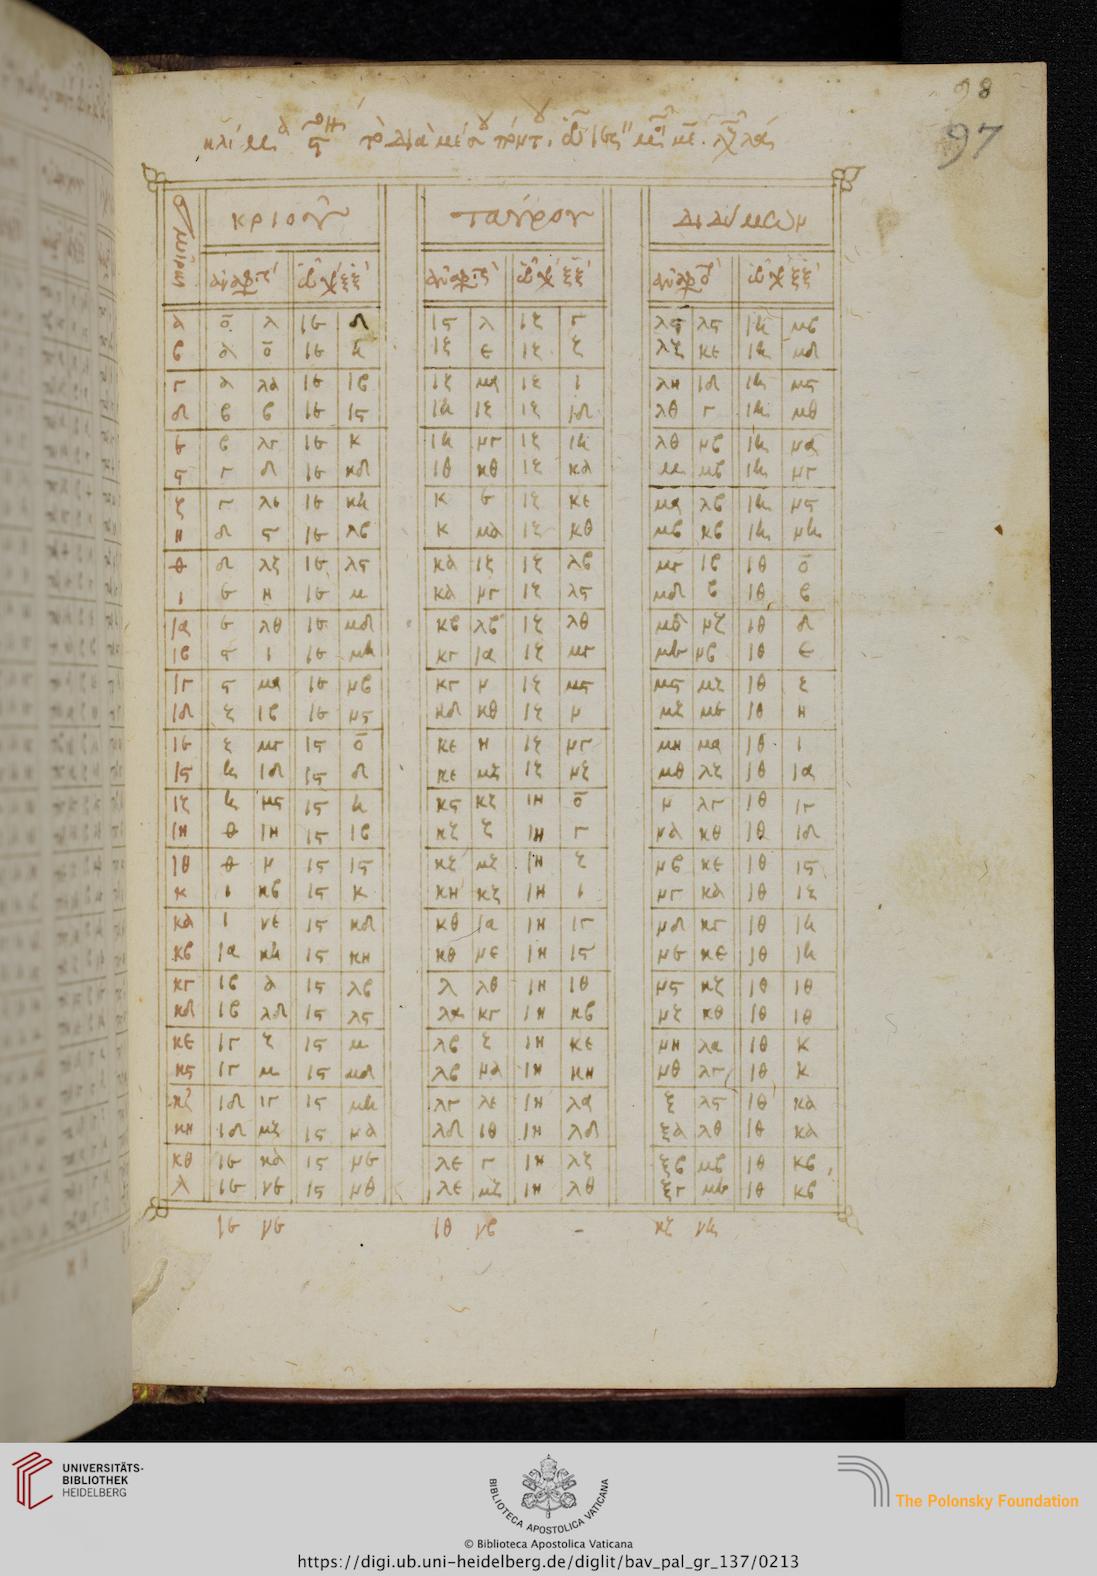 98
97
κριοῦ ταύρου διδύμων
α ο λ ιε δ ις λ ιζ γ λς λς ιη μβ
β α ο ιε η ιζ ε ιζ ζ λζ κε ιη μδ
γ α λα ιε ιβ ιζ μα ιζ ι λη ιδ ιη μς
δ β β ιε ις ιη ιζ ιζ ιδ λθ γ ιη μθ
ε β λγ ιε κ ιη νγ ιζ ιη λθ νβ ιη να
ς γ δ ιε κδ ιθ κθ ιζ κα μ μβ ιη νγ
ζ γ λε ιε κη κ ε ιζ κε μα λβ ιη νς
η δ ς ιε λβ κ μα ιζ κθ μβ κβ ιη νη
θ δ λζ ιε λς κα ιζ ιζ λβ μγ ιβ ιθ ο
ι ε η ιε μ κα νγ ιζ λς μδ β ιθ β
ια ε λθ ιε μδ κβ λβ ιζ λθ μδ νζ ιθ δ
ιβ ς ι ιε μη κγ ια ιζ μγ με νβ ιθ ε
ιγ ς μα ιε νβ κγ ν ιζ μς μς μζ ιθ ζ
ιδ ζ ιβ ιε νς κδ κθ ιζ ν μζ με ιθ η
ιε ζ μγ ις ο κε η ιζ νγ μη μα ιθ ι
ις η ιδ ις δ κε μζ ιζ νζ μθ λζ ιθ ια
ιζ η μς ις η κς κζ ιη ο ν λγ ιθ ιγ
ιη θ ιη ις ιβ κζ ζ ιη γ να κθ ιθ ιδ
ιθ θ ν ις ις κζ μζ ιη ζ νβ κε ιθ ις
κ ι κβ ις κ κη κζ ιη ι νγ κα ιθ ιζ
κα ι νε ις κδ κθ ια ιη ιγ νδ κγ ιθ ιη
κβ ια κη ις κη κθ νε ιη ις νε κε ιθ ιη
κγ ιβ α ις λβ λ λθ ιη ιθ νς κζ ιθ ιθ
κδ ιβ λδ ις λς λα κγ ιη κβ νζ κθ ιθ ιθ
κε ιγ ζ ις μ λβ ζ ιη κε νη λα ιθ κ
κς ιγ μ ις μδ λβ να ιη κη νθ λγ ιθ κ
κζ ιδ ιγ ις μη λγ λε ιη λα ξ λς ιθ κα
κη ιδ μζ ις να λδ ιθ ιη λδ ξα λθ ιθ κα
κθ ιε κα ις νε λε γ ιη λζ ξβ μβ ιθ κβ
λ ιε νε ις νθ λε μζ ιη λθ ξγ με ιθ κβ
ιε νε ιθ νβ – κζ νη
UNIVERSITÄTS-
BIBLIOTHEK
HEIDELBERG
BIBLIOTECA APOSTOLICA VATICANA
The Polonsky Foundation
© Biblioteca Apostolica Vaticana
https://digi.ub.uni-heidelberg.de/diglit/bav_pal_gr_137/0213